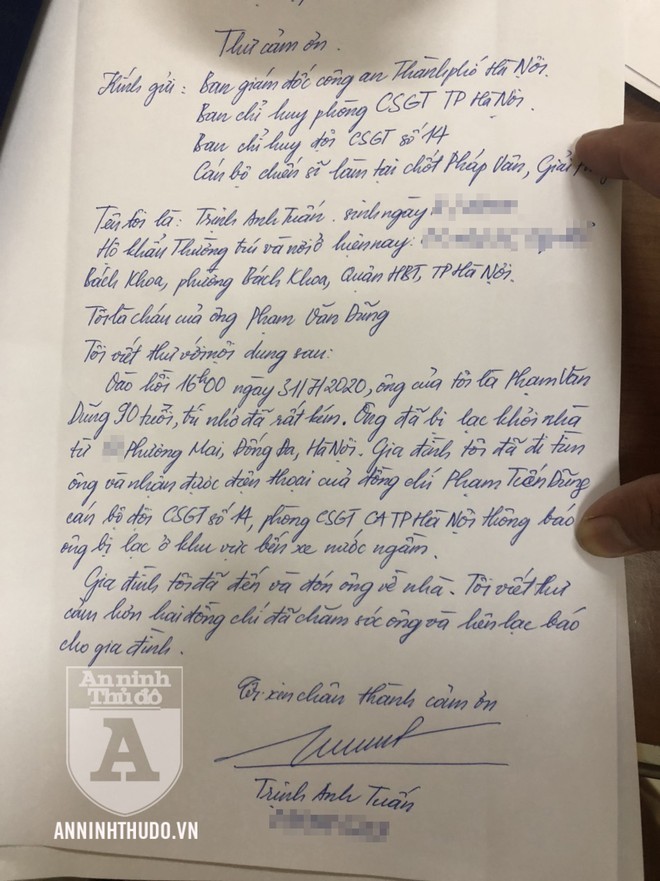 Thư cảm ơn.
Kính gửi: Ban giám đốc công an Thành phố Hà Nội.
Ban chỉ huy phòng CSGT TP Hà Nội.
Ban chỉ huy đội CSGT số 14
Cán bộ chiến sĩ làm tại chốt Pháp Vân, Giải
Tên tôi là: Trịnh Anh Tuấn. sinh ngày
Hộ khẩu Thường trú và nơi ở hiện nay:
Bách Khoa, phường Bách Khoa, Quận HBT, TP Hà Nội.
Tôi là cháu của ông Phạm Văn Dũng
Tôi viết thư với nội dung sau:
Vào hồi 16h00 ngày 31/7/2020, ông của tôi là Phạm Văn
Dũng 90 tuổi, trí nhớ đã rất kém. Ông đã bị lạc khỏi nhà
từ Phương Mai, Đống Đa, Hà Nội. Gia đình tôi đã đi tìm
ông và nhận được điện thoại của đồng chí Phạm Tiến Dũng
cán bộ đội CSGT số 14, phòng CSGT CATP Hà Nội thông báo
ông bị lạc ở khu vực bến xe nước ngầm.
Gia đình tôi đã đến và đón ông về nhà. Tôi viết thư
cảm hơn hai đồng chí đã chăm sóc ông và liên lạc báo
cho gia đình.
Tôi xin chân thành cảm ơn
Trịnh Anh Tuấn
An ninh
Thủ đô
A
ANNINHTHUDO.VN